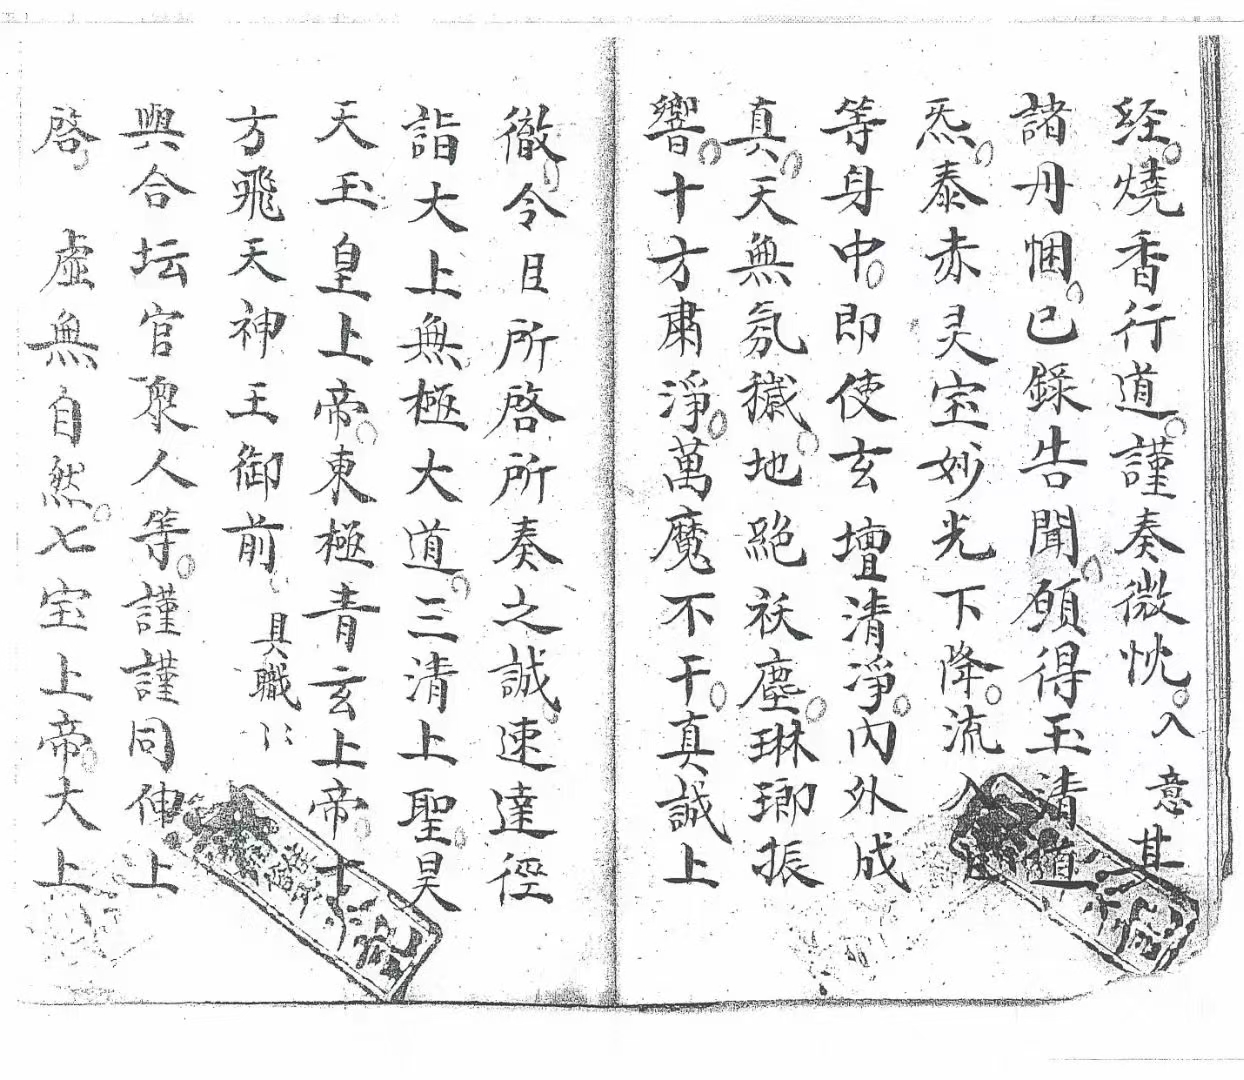 経燒香行道謹奏微忱入意其
諸丹悃已錄告聞願得玉清道
炁泰赤灵宝妙光下降流入臣
等身中即使玄壇清淨内外成
真天無氛穢地絕祅塵琳瑯振
響十方肅淨萬魔不干真誠上
徹令臣所啓所奏之誠速達徑
詣大上無極大道三清上聖昊
天玉皇上帝東極青玄上帝十
方飛天神王御前具職〻
與合坛官衆人等謹謹同伸上
啓 虛無自然七宝上帝大上